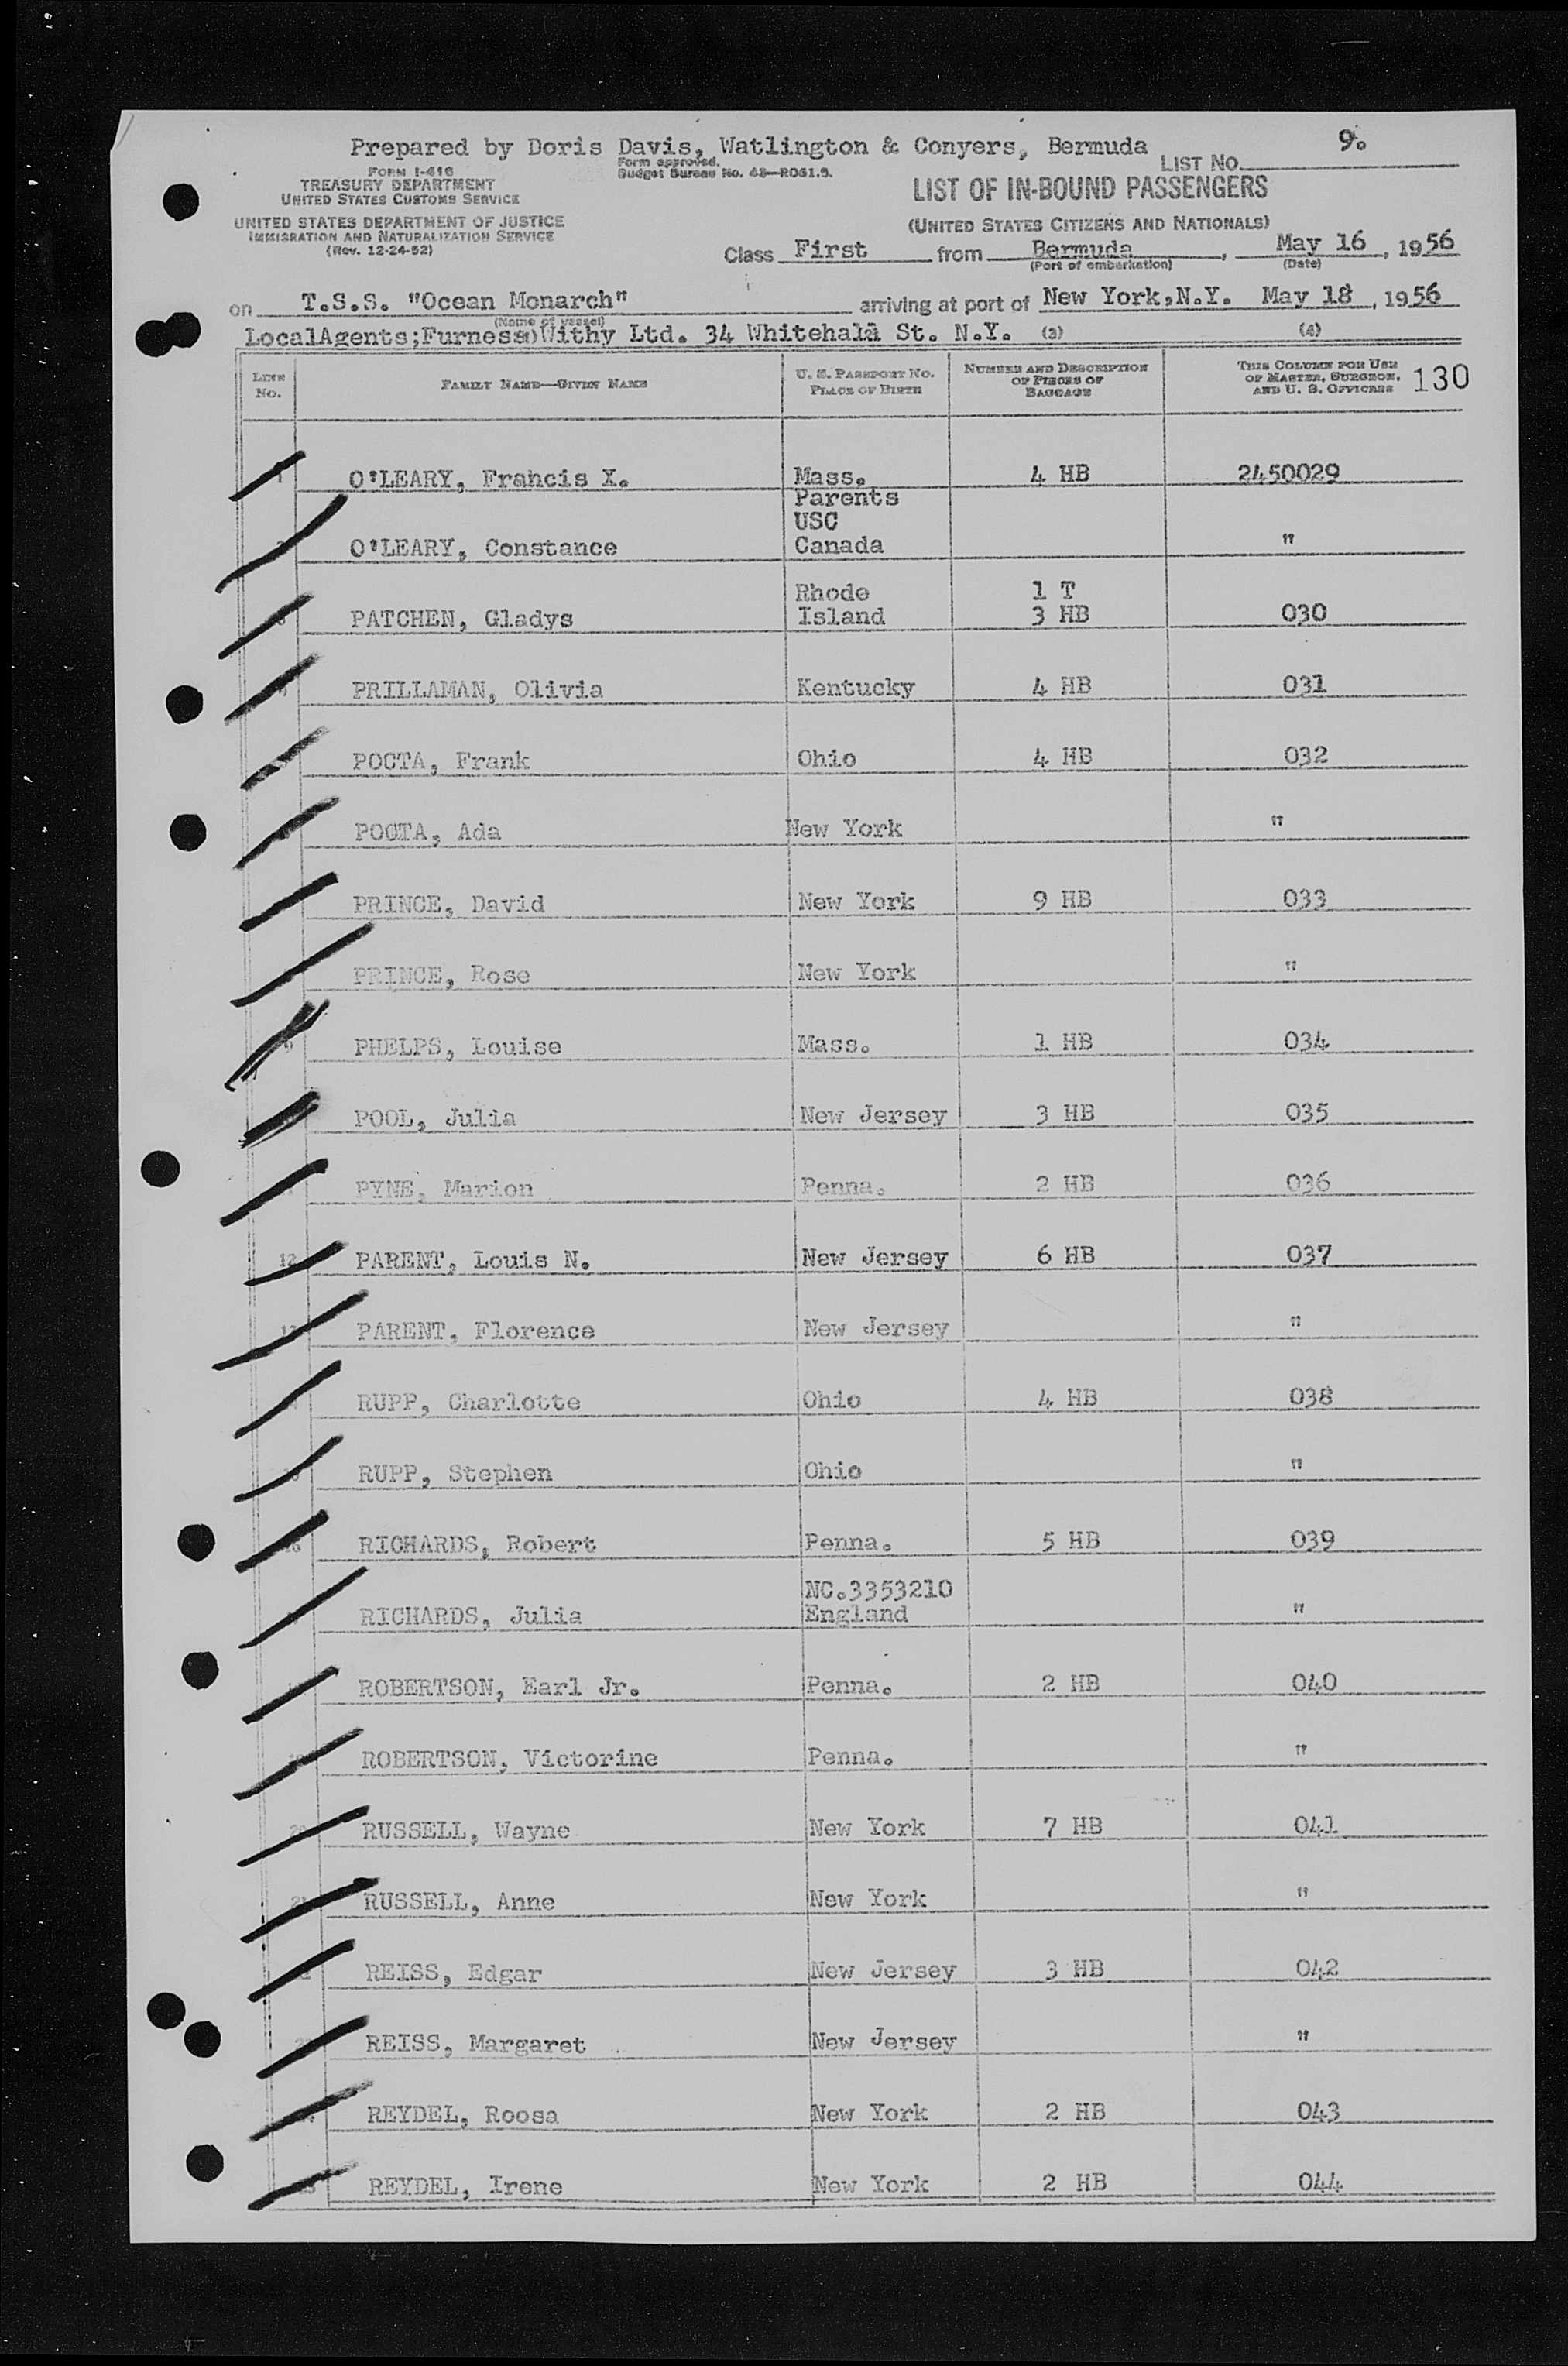 Prepared by Doris Davis, Watlington & Conyers, Bermuda
9.
LIST NO.
FORM I-416
TREASURY DEPARTMENT
UNITED STATES CUSTOMS SERVICE
UNITED STATES DEPARTMENT OF JUSTICE
IMMIGRATION AND NATURALIZATION SERVICE
(Rev. 12-24-52)
Form approved.
Budget Bureau No. 43—R061.5.
LIST OF IN-BOUND PASSENGERS
(UNITED STATES CITIZENS AND NATIONALS)
Class First from Bermuda, May 16, 1956
(Port of embarkation) (Date)
on T.S.S. "Ocean Monarch" arriving at port of New York,N.Y. May 18, 1956
(Name of vessel)
LocalAgents;Furness Withy Ltd. 34 Whitehall St. N.Y. (3) (4)
LINE No. FAMILY NAME—GIVEN NAME U. S. PASSPORT NO. PLACE OF BIRTH NUMBER AND DESCRIPTION OF PIECES OF BAGGAGE THIS COLUMN FOR USE OF MASTER, SURGEON, AND U. S. OFFICERS 130
1 O'LEARY, Francis X. Mass. 4 HB 2450029
Parents
USC
O'LEARY, Constance Canada "
Rhode 1 T
PATCHEN, Gladys Island 3 HB 030
PRILLAMAN, Olivia Kentucky 4 HB 031
POCTA, Frank Ohio 4 HB 032
POCTA, Ada New York "
PRINCE, David New York 9 HB 033
PRINCE, Rose New York "
9 PHELPS, Louise Mass. 1 HB 034
POOL, Julia New Jersey 3 HB 035
PYNE, Marion Penna. 2 HB 036
12 PARENT, Louis N. New Jersey 6 HB 037
13 PARENT, Florence New Jersey "
RUPP, Charlotte Ohio 4 HB 038
RUPP, Stephen Ohio "
16 RICHARDS, Robert Penna. 5 HB 039
NC.3353210
RICHARDS, Julia England "
ROBERTSON, Earl Jr. Penna. 2 HB 040
ROBERTSON, Victorine Penna. "
20 RUSSELL, Wayne New York 7 HB 041
21 RUSSELL, Anne New York "
REISS, Edgar New Jersey 3 HB 042
REISS, Margaret New Jersey "
REYDEL, Roosa New York 2 HB 043
REYDEL, Irene New York 2 HB 044